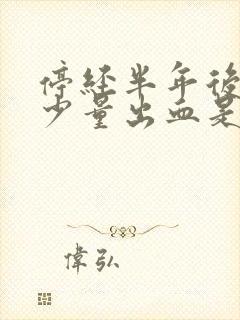 停经半年後
少量出血是
偉弘